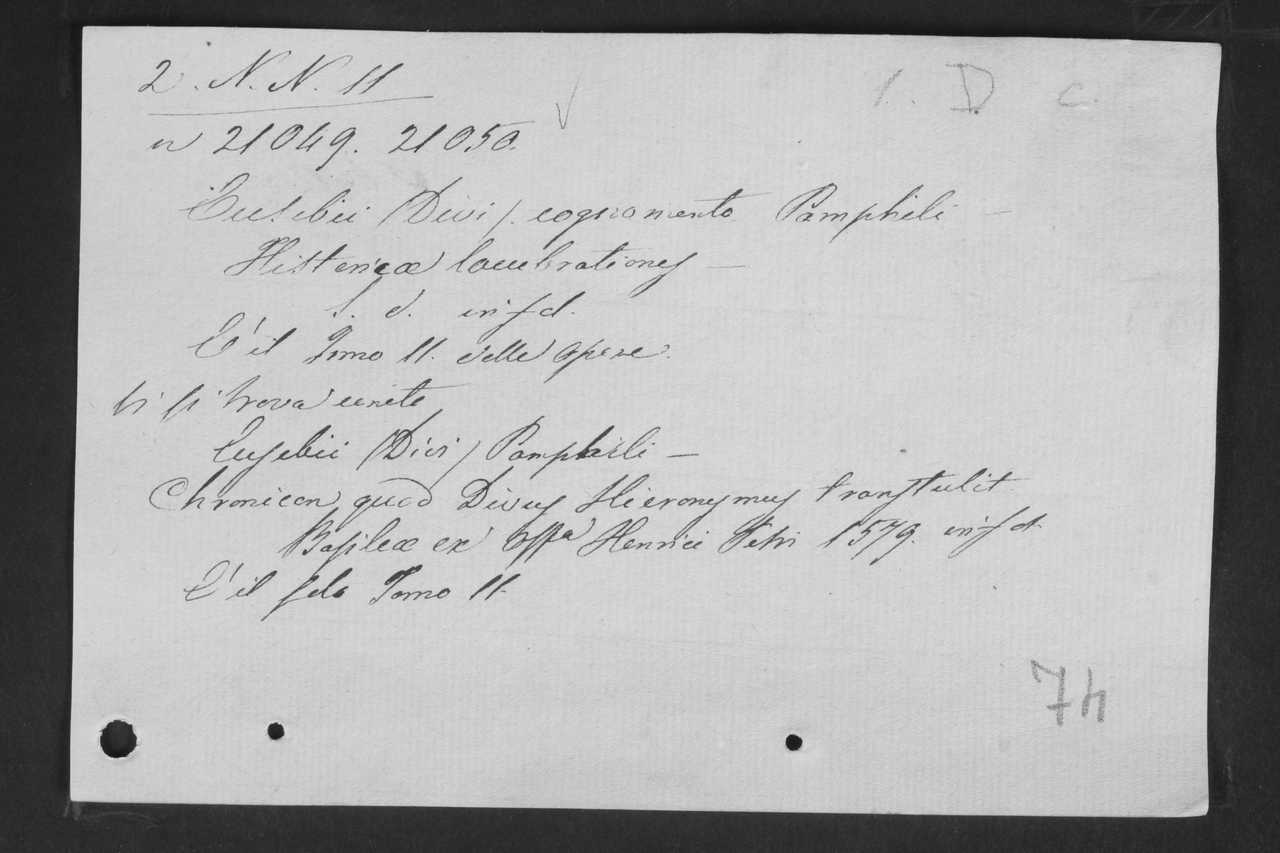 2. N. N. 11
1. D c.
n 21049. 21050.
Eusebii (Divi) cognomento Pamphili —
Historicæ lucubrationes —
s. d. in fol.
E' il Tomo II. delle opere.
Vi si trova unito
Eusebii (Divi) Pamphili —
Chronicon, quod Divus Hieronymus transtulit
Basileæ ex offa Henrici Petri 1579. in fol
E' il solo Tomo II.
74